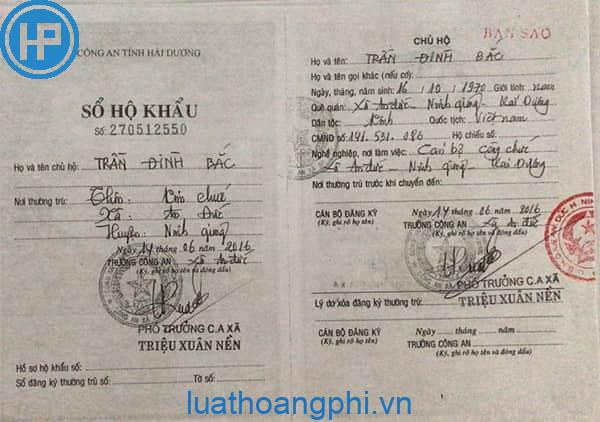 HP
CÔNG AN TỈNH HẢI DƯƠNG
SỔ HỘ KHẨU
Số: 270512550
Họ và tên chủ hộ: TRẦN ĐÌNH BẮC
Nơi thường trú: Thôn:
Xã: An Đức
Huyện: Ninh Giang
Ngày 14 tháng 06 năm 2016
TRƯỞNG CÔNG AN Xã An Đức
(Ký, ghi rõ họ tên và đóng dấu)
PHÓ TRƯỞNG C.A XÃ
TRIỆU XUÂN NỀN
Hồ sơ hộ khẩu số:
Sổ đăng ký thường trú số: Tờ số:
BẢN SAO
CHỦ HỘ
Họ và tên: TRẦN ĐÌNH BẮC
Họ và tên gọi khác (nếu có):
Ngày, tháng, năm sinh: 16/10/1970 Giới tính: nam
Quê quán: Xã An Đức - Ninh Giang - Hải Dương
Dân tộc: Kinh Quốc tịch: Việt nam
CMND số: 141.531.086 Hộ chiếu số:
Nghề nghiệp, nơi làm việc: Cán bộ công chức
Xã An Đức - Ninh Giang - Hải Dương
Nơi thường trú trước khi chuyển đến:
Ngày 14 tháng 06 năm 2016
CÁN BỘ ĐĂNG KÝ TRƯỞNG CÔNG AN Xã An Đức
(Ký, ghi rõ họ tên) (Ký, ghi rõ họ tên và đóng dấu)
PHÓ TRƯỞNG C.A XÃ
TRIỆU XUÂN NỀN
Lý do xóa đăng ký thường trú:
Ngày tháng năm
CÁN BỘ ĐĂNG KÝ TRƯỞNG CÔNG AN
(Ký, ghi rõ họ tên) (Ký, ghi rõ họ tên và đóng dấu)
luathoangphi.vn